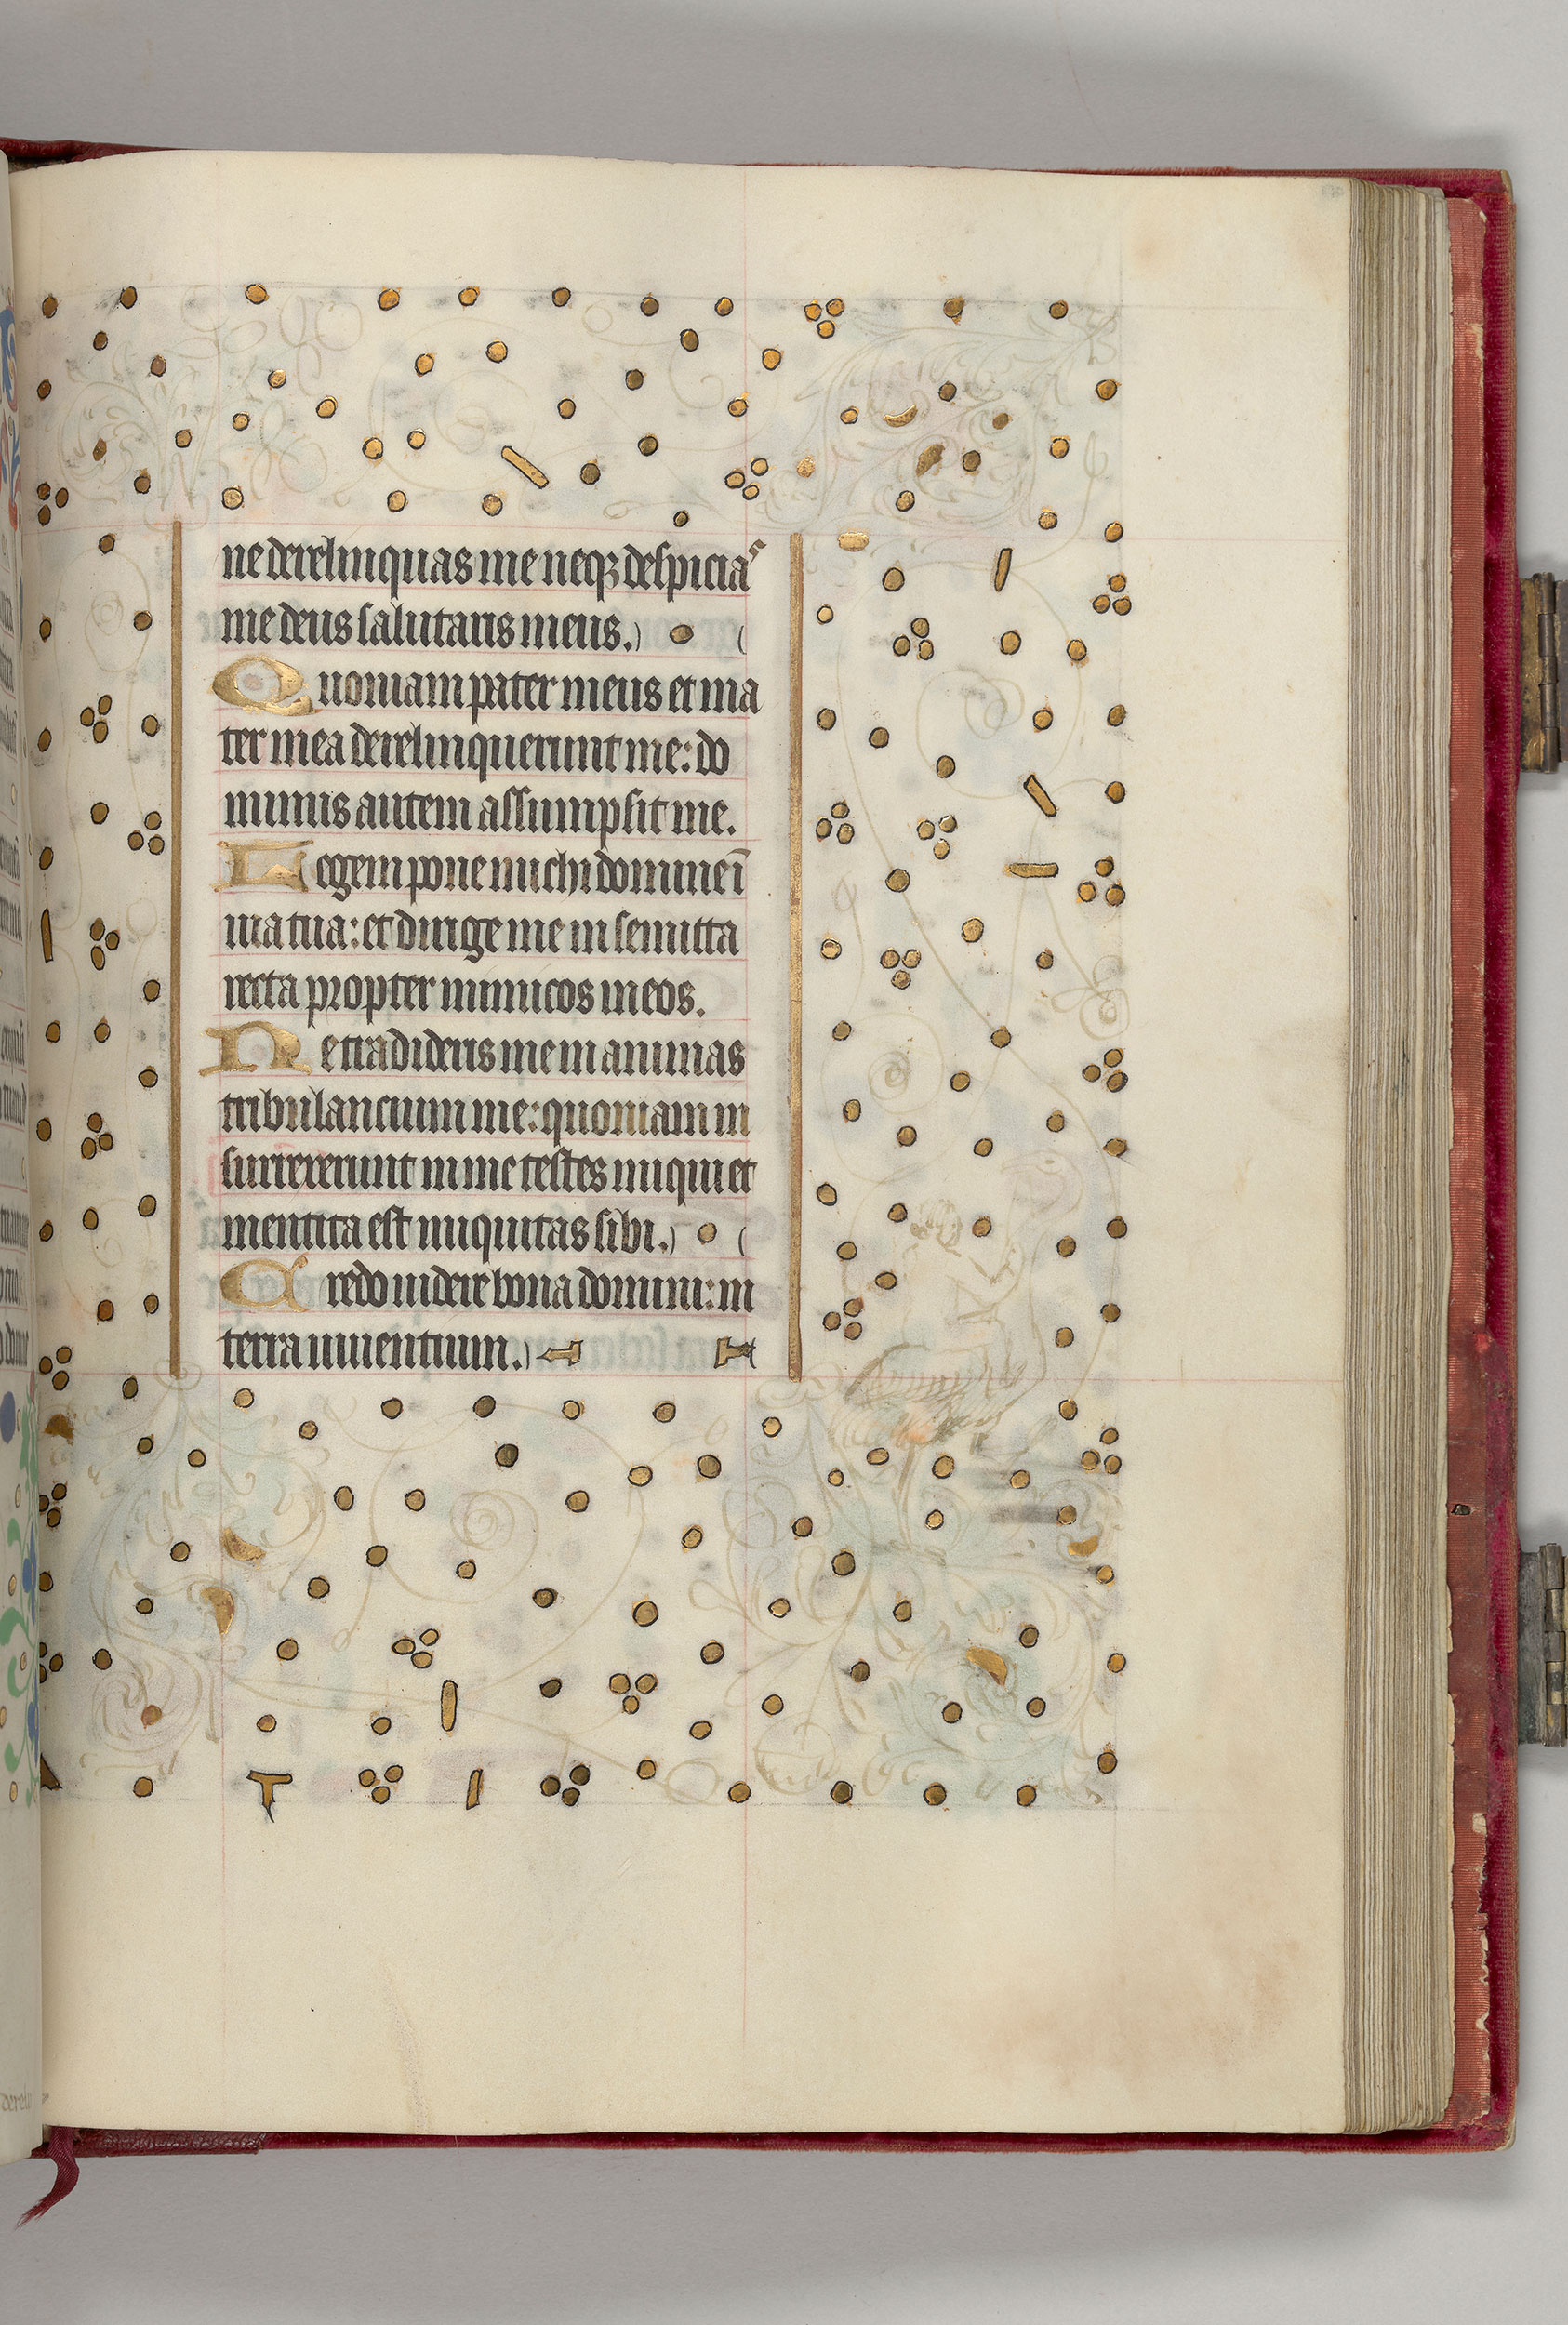 ne derelinquas me neqꝫ despicias
me deus salutaris meus.
Quoniam pater meus et ma
ter mea derelinquerunt me: do
minus autem assumpsit me.
Legem pone michi domine ī
uia tua: et dirige me in semitta
recta propter inimicos meos.
Ne tradideris me in animas
tribulancium me: quoniam in
surrexerunt in me testes iniqui et
mentita est iniquitas sibi.
Credo uidere bona domini: in
terra uiuentium.